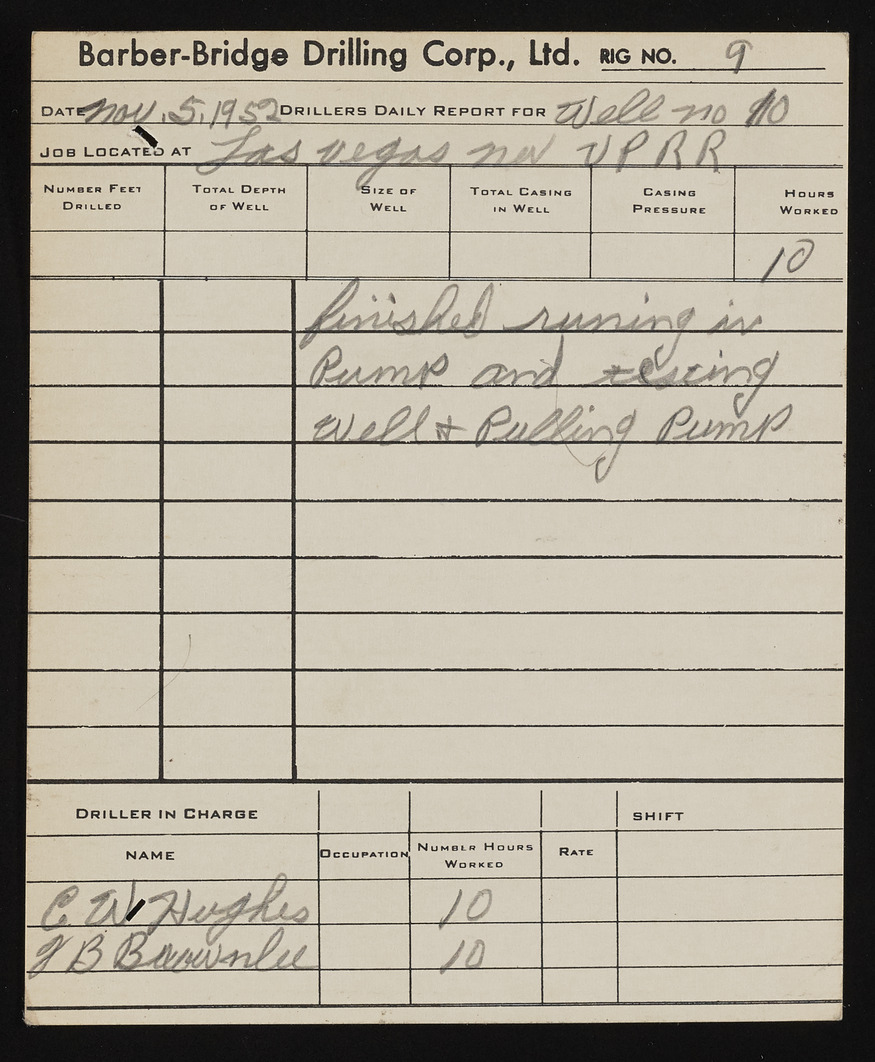 Barber-Bridge Drilling Corp., Ltd. RIG NO. 9
DATE Nov. 5, 1952 DRILLERS DAILY REPORT FOR Well no 10
JOB LOCATED AT Las vegas nev UPRR
NUMBER FEET DRILLED TOTAL DEPTH OF WELL SIZE OF WELL TOTAL CASING IN WELL CASING PRESSURE HOURS WORKED
10
finished runing in
Pump and testing
Well & Pulling Pump
DRILLER IN CHARGE SHIFT
NAME OCCUPATION NUMBER HOURS WORKED RATE
C W Hughes 10
B Brownlee 10